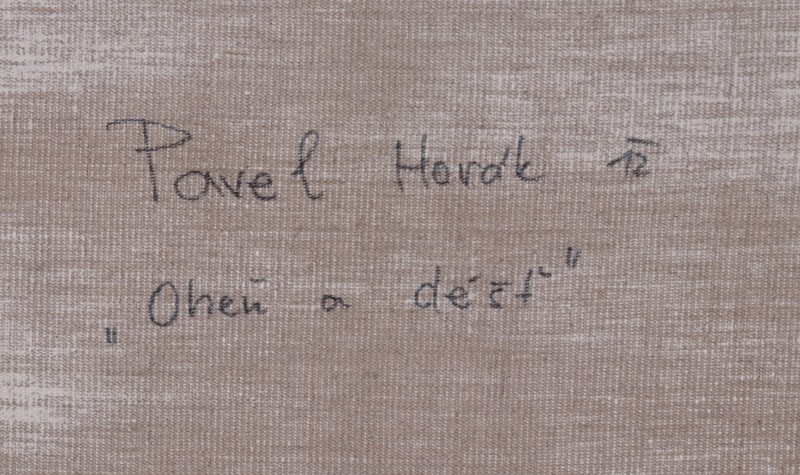 Pavel Horák 12
„Oheň a déšť"